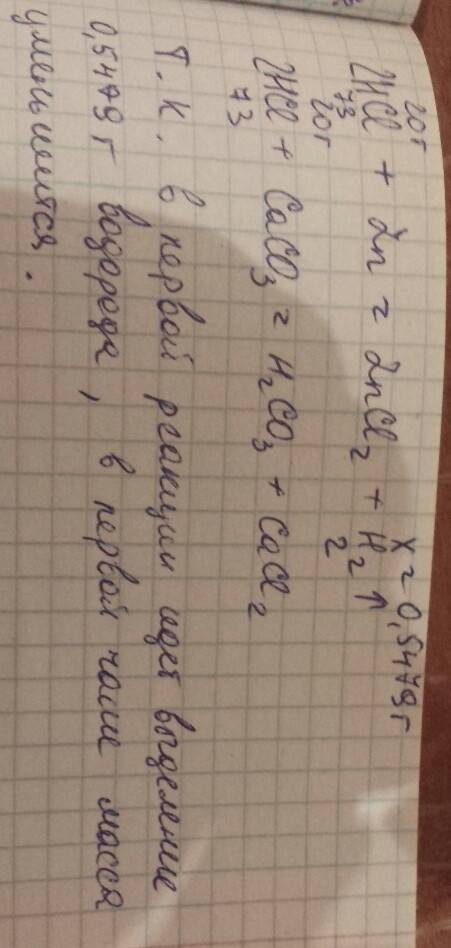 20г X = 0,5479 г
2HCl + Zn = ZnCl₂ + H₂↑
73 2
20г
2HCl + CaCO₃ = H₂CO₃ + CaCl₂
73
Т. к. в первой реакции идет выделение
0,5479 г водорода, в первой чаше масса
уменьшится.